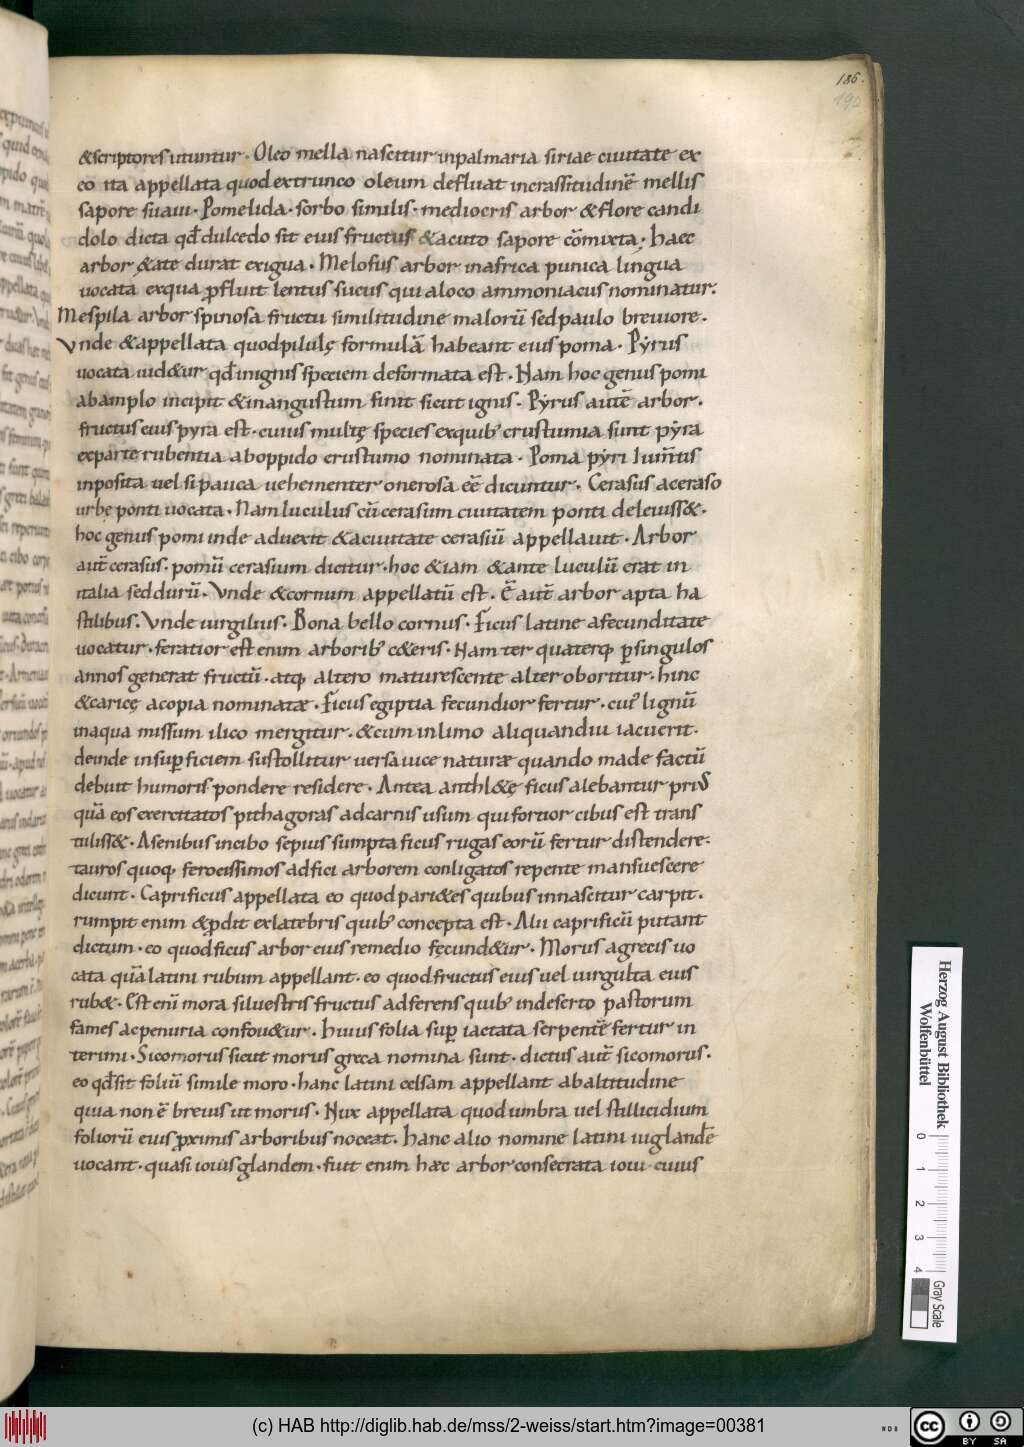 186.
190
&scriptores utuntur. Oleo mella nascitur inpalmaria siriae ciuitate ex
eo ita appellata quod extrunco oleum defluat incrassitudinē mellis
sapore suaui. Pomelida. sorbo similis. mediocris arbor & flore candi
dolo dicta qđ dulcedo sit eius fructus & acuto sapore cōmixta; haec
arbor &ate durat exigua. Melofus arbor inafrica punica lingua
uocata exqua ꝓfluit lentus sucus qui aloco ammoniacus nominatur.
Mespila arbor spinosa fructu similitudine malorū sedpaulo breuiore.
Vnde &appellata quodpilulę formulā habeant eius poma. Pẏrus
uocata uid&ur qđ inignis speciem deformata est. Nam hoc genus pomi
abamplo incipit & inangustum finit sicut ignis. Pẏrus autē arbor.
fructus eius pyra est. cuius multę species exquib; crustumia sunt pẏra
exparte rubentia aboppido crustumo nominata. Poma pẏri ium̄tis
inposita uel si pauca uehementer onerosa eē dicuntur. Cerasus aceraso
urbe ponti uocata. Nam luculus cū cerasum ciuitatem ponti deleuiss&.
hoc genus pomi inde aduexit & aciuitate cerasiū appellauit. Arbor
aut̄ cerasus. pomū cerasium dicitur. hoc &iam &ante luculū erat in
italia sed durū. Vnde &cornum appellatū est. Ē aut̄ arbor apta ha
stilibus. Vnde uirgilius. Bona bello cornus. Ficus latine afecunditate
uocatur. feratior est enim arborib; c&eris. Nam ter quaterq; ꝑ singulos
annos generat fructū. atq; altero maturescente alter oboritur. hinc
&caricę acopia nominatæ. Ficus egiptia fecundior fertur. cui' lignū
inaqua missum ilico mergitur. &cum inlimo aliquandiu iacuerit.
deinde insuꝑficiem sustollitur uersa uice naturæ quando made factū
debuit humoris pondere residere. Antea anthl&ę ficus alebantur priꝰ
quā eos exercitatos pithagoras adcarnis usum qui fortior cibus est trans
tuliss&. Asenibus incibo sepius sumpta ficus rugas eorū fertur distendere.
tauros quoq; ferocissimos adfici arborem conligatos repente mansuescere
dicunt. Caprificus appellata eo quod pari&es quibus innascitur carpit.
rumpit enim &ꝓdit exlatebris quib; concepta est. Alii caprificū putant
dictum. eo quod ficus arbor eius remedio fęcund&ur. Morus agrecis uo
cata quā latini rubum appellant. eo quod fructus eius uel uirgulta eius
rub&. Est eni mora siluestris fructus adferens quib; indeserto pastorum
fames acpenuria confou&ur. huius folia suꝑ iactata serpentē fertur in
terimi. Sicomorus sicut morus greca nomina sunt. dictus aut̄ sicomorus.
eo qđ sit foliū simile moro. hanc latini celsam appellant abaltitudine
quia non ē breuis ut morus. Nux appellata quod umbra uel stillicidium
foliorū eius ꝓximis arboribus noceat. hanc alio nomine latini iuglandē
uocant. quasi iouis glandem. fuit enim hæc arbor consecrata ioui. cuius
Herzog August Bibliothek
Wolfenbüttel
0 1 2 3 4
Gray Scale
(c) HAB http://diglib.hab.de/mss/2-weiss/start.htm?image=00381
cc BY SA